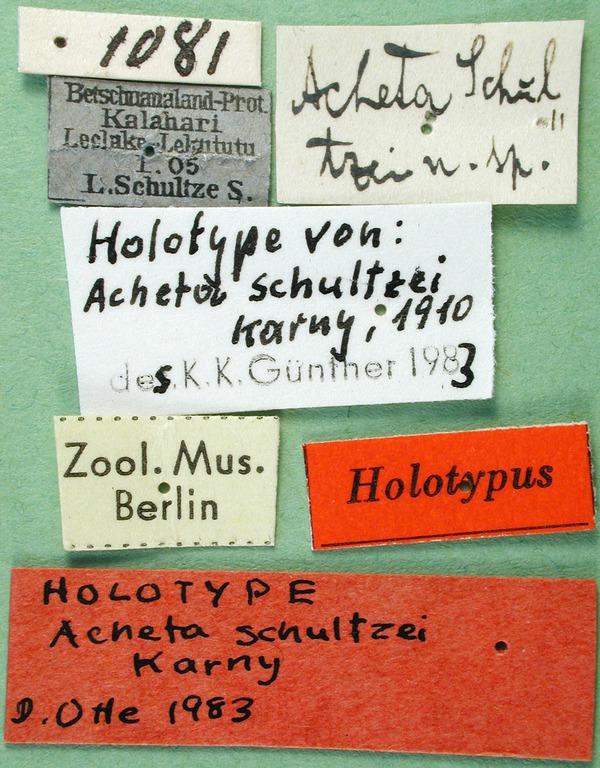 1081
Betschuanaland-Prot.
Kalahari
Lehututu
1. 05
L. Schultze S.
Acheta Schul
tzei n. sp.
Holotype von:
Acheta schultzei
Karny, 1910
des. K. K. Günther 1983
Zool. Mus.
Berlin
Holotypus
HOLOTYPE
Acheta schultzei
Karny
D. Otte 1983